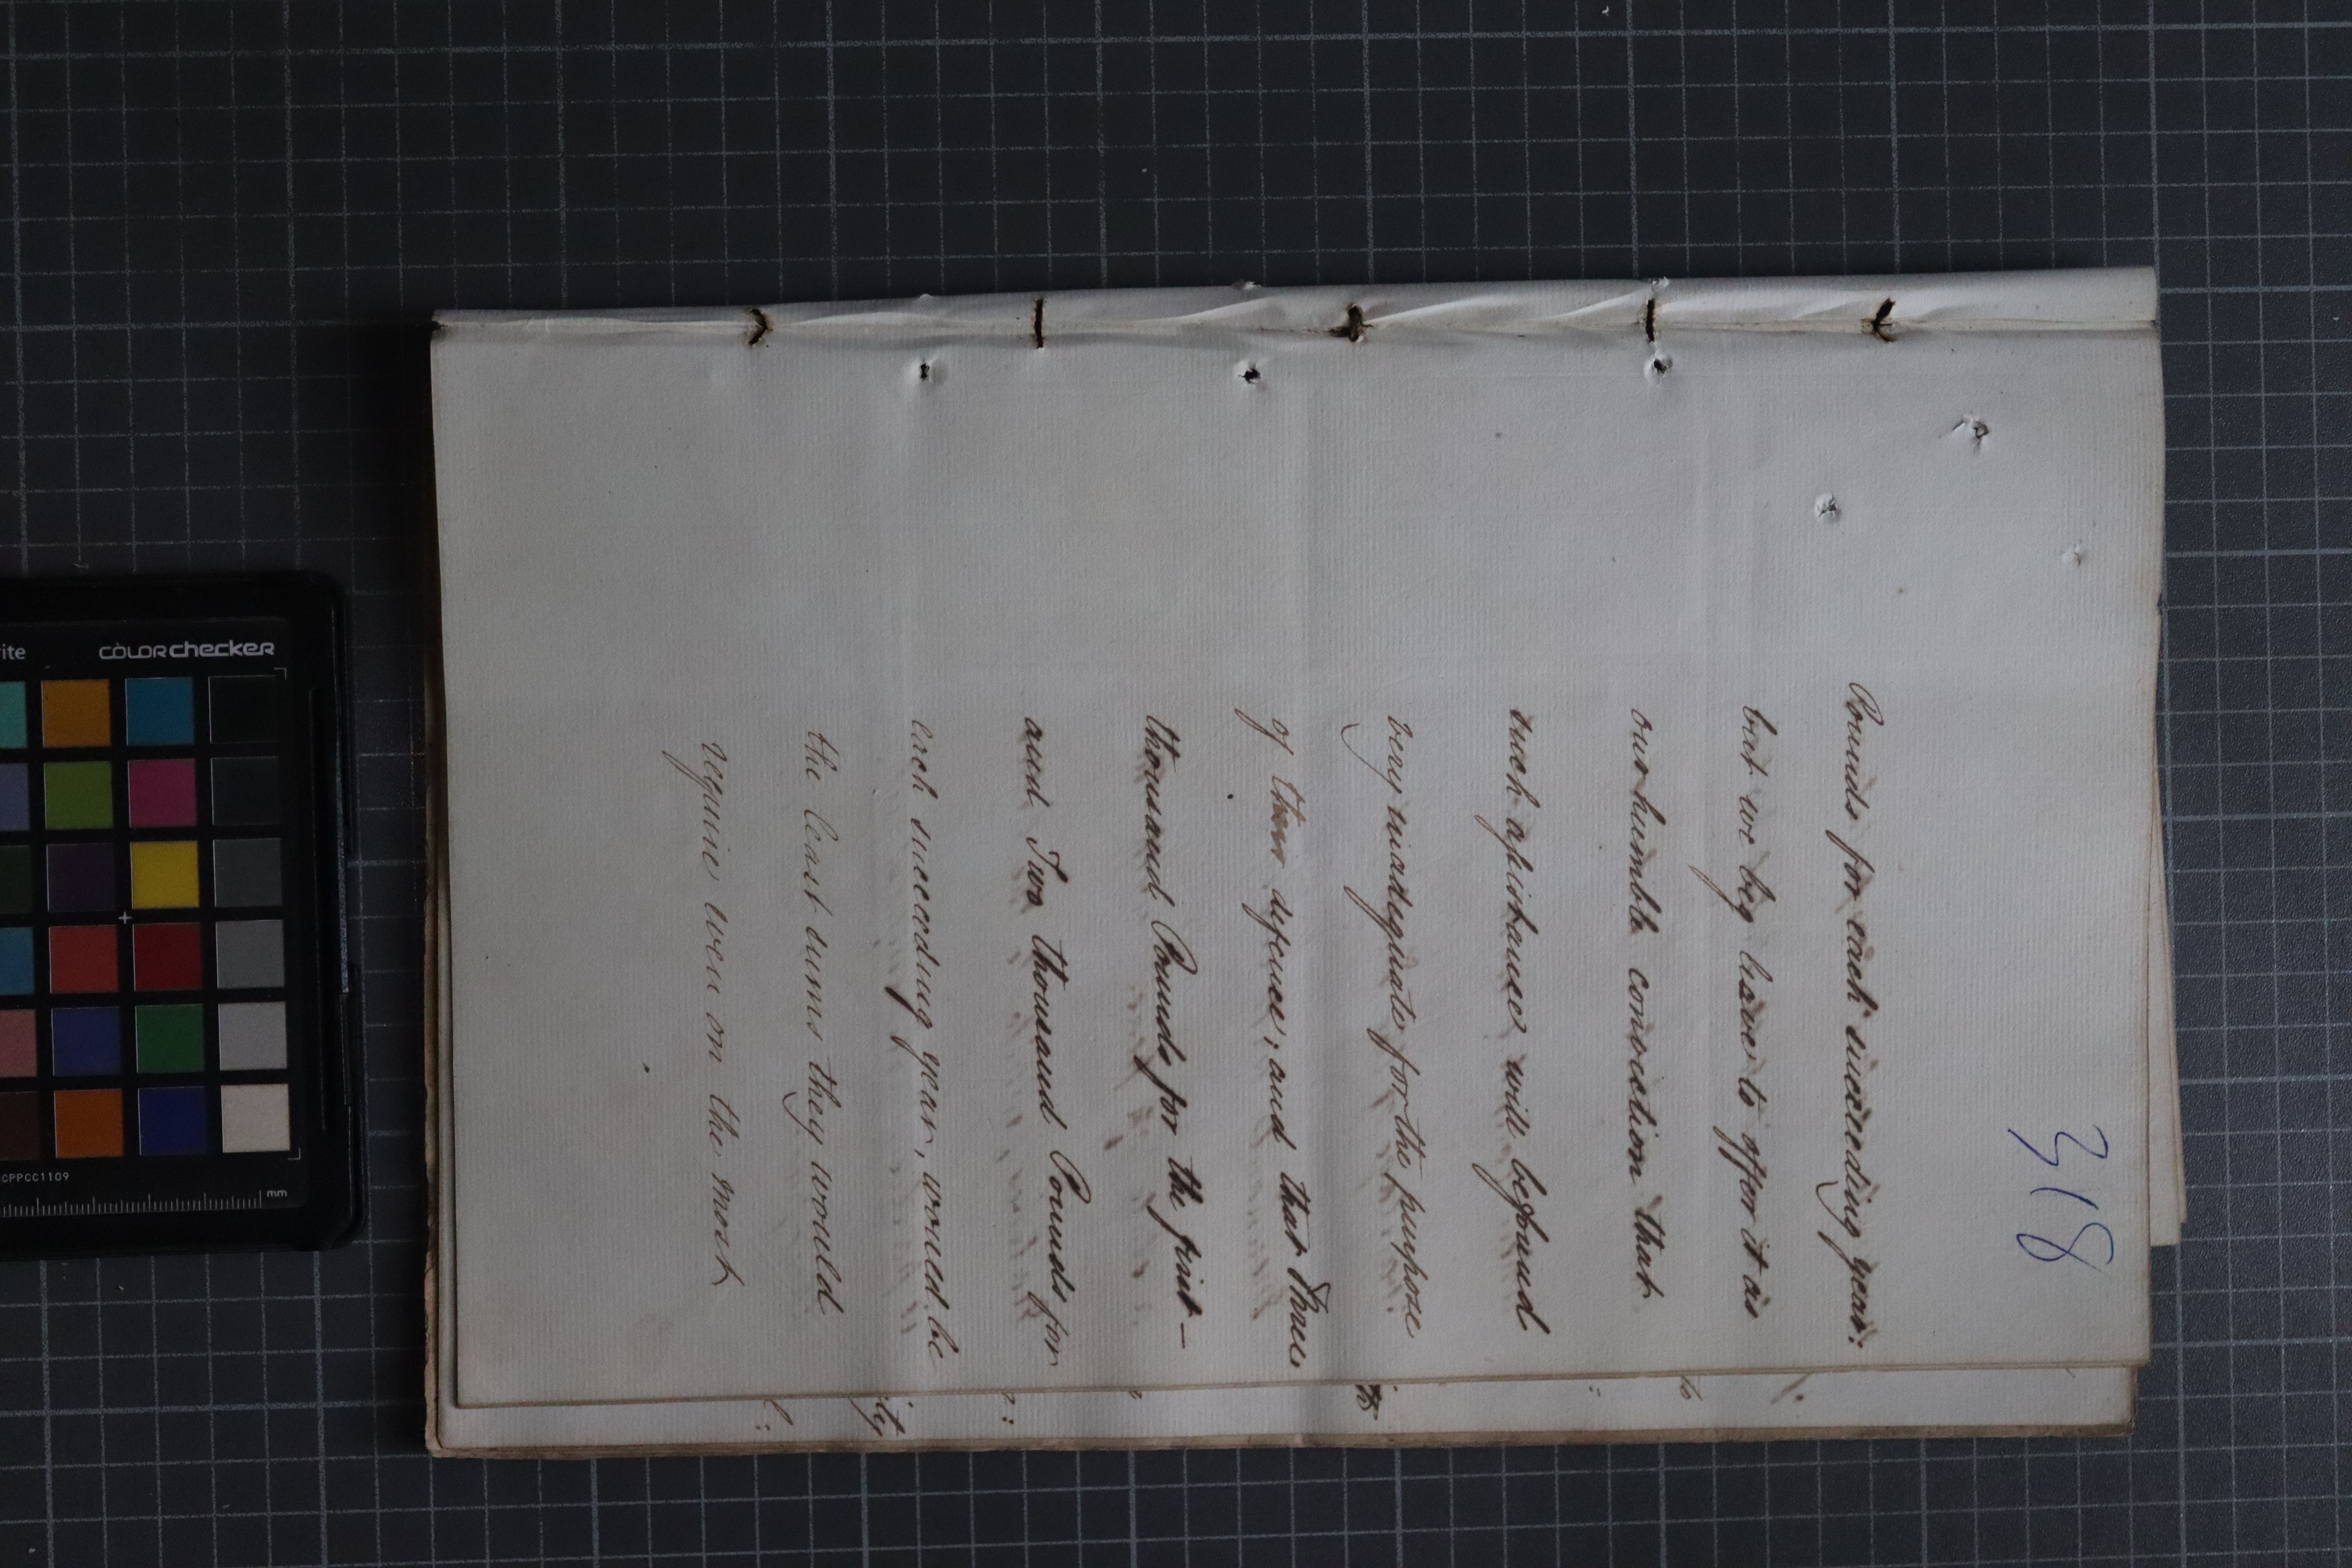 318
Pounds for each succeeding year:
but we beg leave to offer it as
our humble conviction that
such assistance will be found
very inadequate for the purpose
of their defence; and that Three
thousand Pounds for the first —
and Two thousand Pounds for
each succeeding year, would be
the least sums they would
require even on the most
colorchecker
CPPCC1109
mm